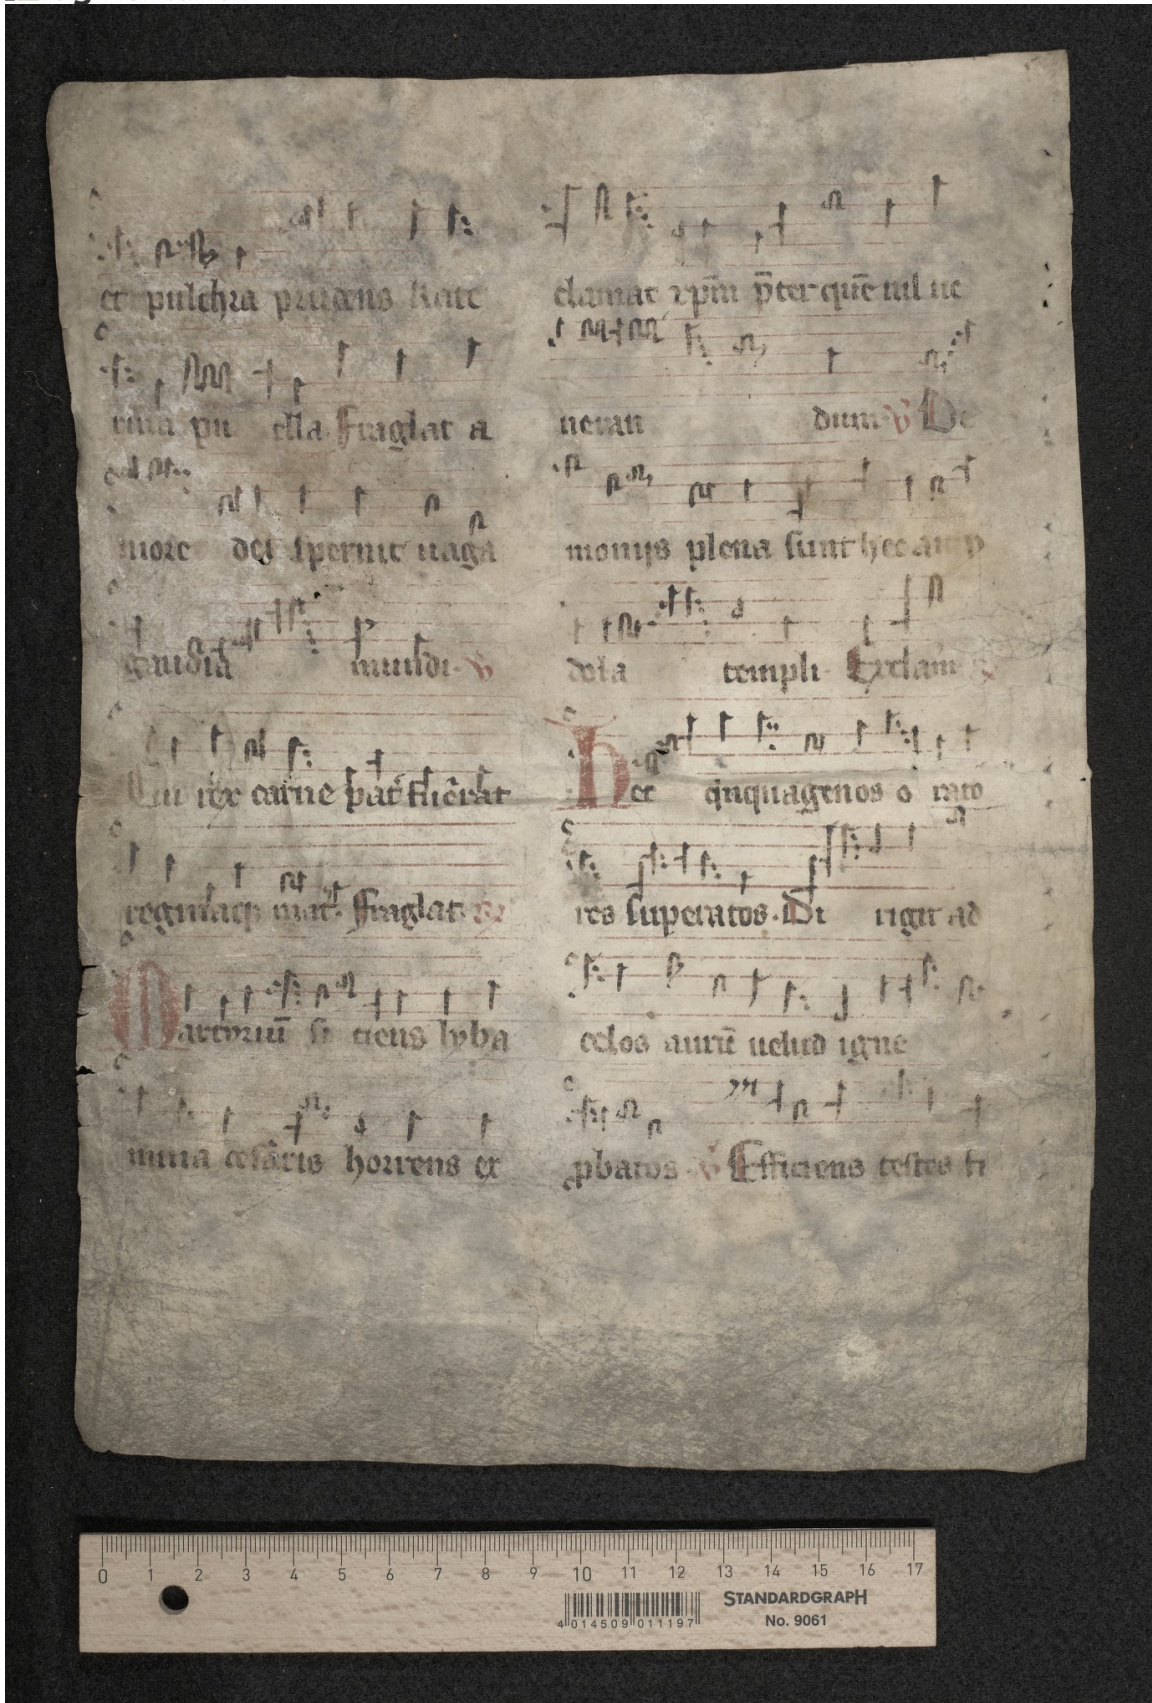 et pulchra prudens kate
rina pu ella fraglat a
more dei spernit uaga
gaudia mundi. V
Cui rex carne pat̾ fuerat
reginaq; mat̾. Fraglat. R
Martyriū si tiens lyba
mina cesaris horrens et
clamat xp̄m p̄ter quē nil ue
neran dum. V De
monijs plena sunt hec
dola templi. Exclam
Hec qͥnquagenos o rato
res superatos. Di rigit ad
celos aurū uelud igne
ꝓbatos. V Efficiens testes fi
0 1 2 3 4 5 6 7 8 9 10 11 12 13 14 15 16 17
4 014509 011197
STANDARDGRAPH
No. 9061